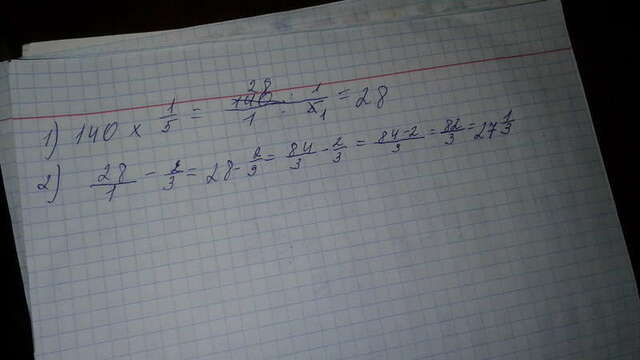 1) 140 × 1/5 = 140/1 28 : 1/5 1 = 28
2) 28/1 - 2/3 = 28 - 2/3 = 84/3 - 2/3 = 84-2/3 = 82/3 = 27 1/3